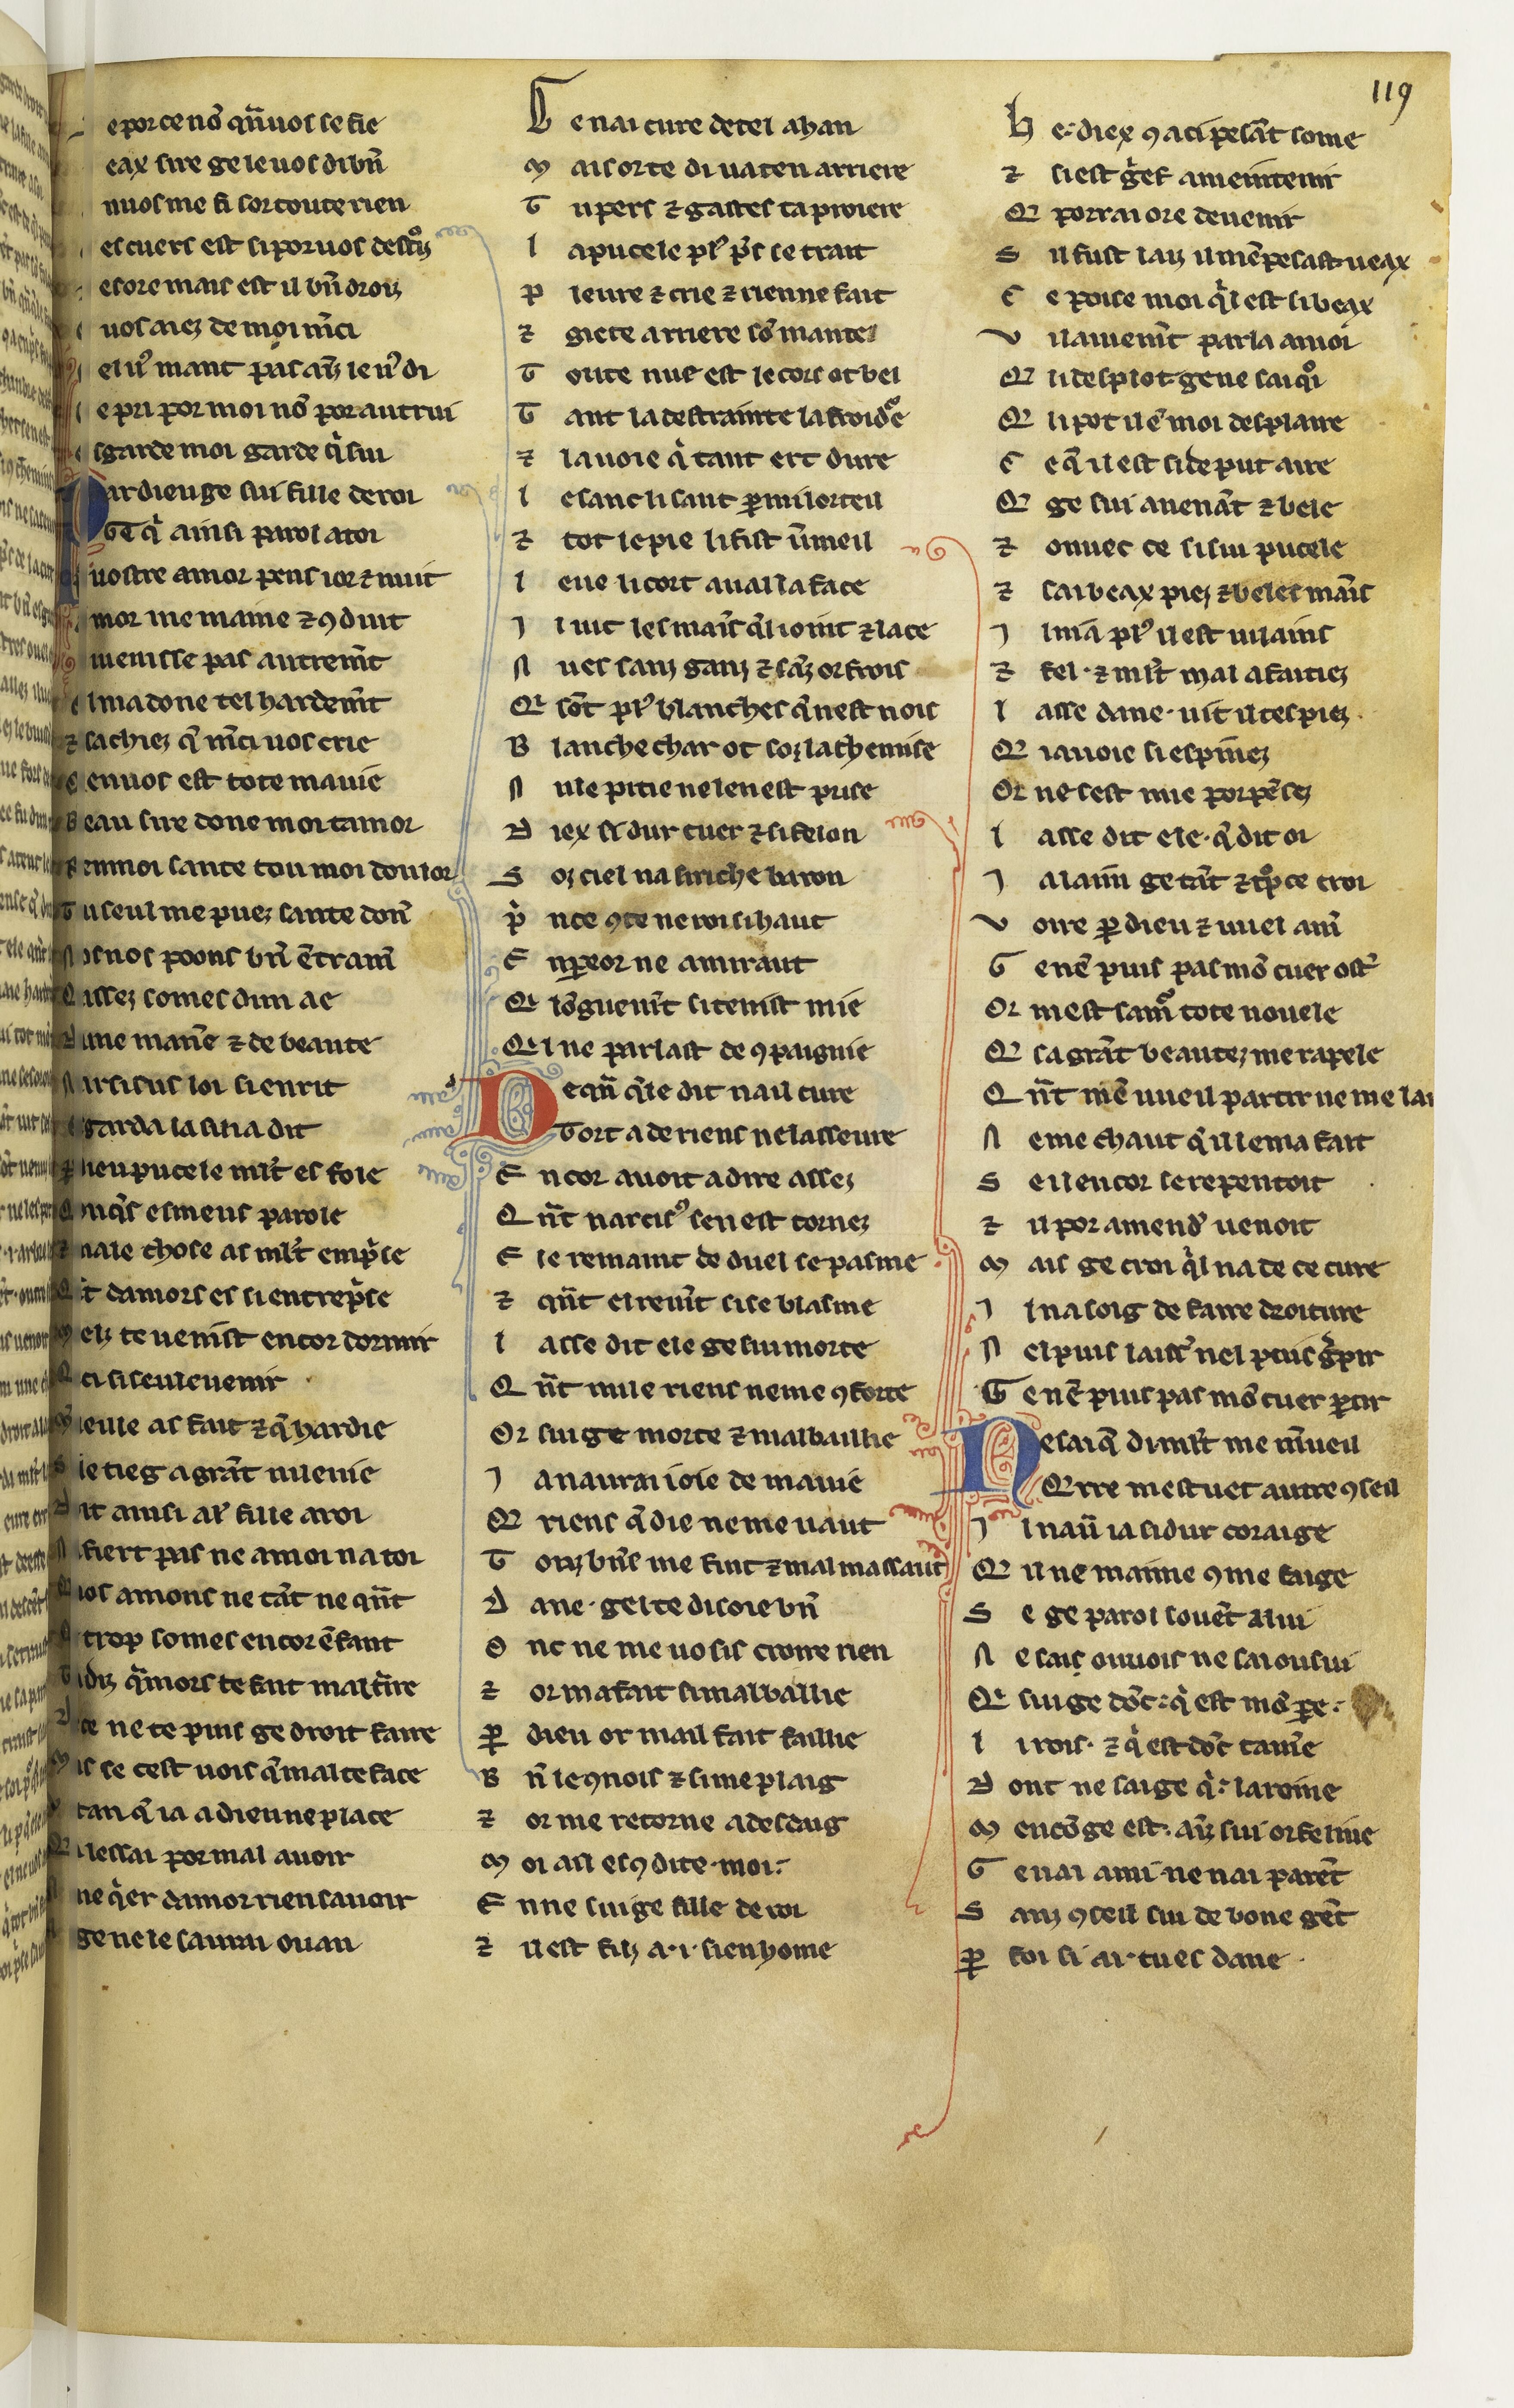 119
e por ce nō qn̄ uos se fie
eax sire ge le uos di bn̄
n uos me fi sor toute rien
es cuers est si por uos destͦiz
esore mais est il bn̄ droiz
uos aiez de moi m̄ci
el uꝰ mant pas aīz le uꝰ di
e pri por moi nō por autrui
sgarde moi garde q̇ sui
Pardieu ge sui fille de roi
Ge q̇ ainsi parol a toi
uostre amor pens ior ⁊ nuit
mor me maine ⁊ ꝯduit
i uenisse pas autrem̄t
l ma done tel hardem̄t
⁊ sachiez q̄ m̄ci uos crie
En uos est tote ma uie
Beau sire done moi tamor
Ren moi sante tou moi doulor
Tu seul me puez sante don̄
Nos nos poons bn̄ ētram̄
Assez somes dun ae
Dune man̄e ⁊ de beaute
Narcisus loi si en rit
sgarda la si li a dit
ꝑ dieu pucele ml̄t es fole
Onq̄s esmeus parole
male chose as ml̄t emp̄se
Qn̄t damors es si entrep̄se
Melz te uenist encor dormir
Qci si seule uenir
Meiuelle as fait ⁊ q̄ hardie
Sie tieg a grāt uilenie
Dit ainsi aꝉ fille a roi
Nafiert pas ne a moi na toi
Nos amons ne tāt ne qn̄t
Q trop somes encor ēfant
Tu diz q̄mors te fait martire
De ce ne te puis ge droit faire
Mais se cest uoirs q̄ mal te face
tan q̄ ia a dieu ne place
Q iessai por mal auoir
ne q̇er damor rien sauoir
ge ne le saurai ouan
Ge nai cure de tel ahan
Mais or te di ua ten arriere
Tu pers ⁊ gastes ta proiere
La pucele plꝰ p̄s se trait
Pleure ⁊ crie ⁊ rien ne fait
⁊ giete arriere sō mantel
Toute nue est le cors ot bel
Tant la destrainte la froidͬe
⁊ la uoie q̇ tant ert dure
Le sanc li saut ꝑmi lorteil
⁊ tot le pie li fist ūmeil
Leue li cort aual la face
Iluic les maīs q̄l ioint ⁊ lace
Nues sanz ganz ⁊ sāz orfrois
Q sōt plꝰ blanches q̄ nest nois
Blanche char ot soz la chemise
Nule pitie ne len est prise
Diex si dur cuer ⁊ si felon
Soz ciel na si riche baron
Pṙnce ꝯte ne roi si haut
Enꝑeor ne amiraut
Q lōguem̄t si tenist mie
Q̄l ne parlast de ꝯpaignie
De qn̄ q̄le dit na il cure
Tort a de riens ne lasseure
Encor auoit a dire assez
Qn̄t narcisꝰ sen est tornez
Ele remaint de duel se pasme
⁊ qn̄t el reuīt si se blasme
Lasse dit ele ge sui morte
Qn̄t nule riens ne me ꝯforte
Or suige morte ⁊ mal baillie
Ia naurai ioie de ma uie
Q riens q̄ die ne me uaut
Toz bn̄s me fuit ⁊ mal massaut
Dane gel te disoie bn̄
Onc ne me uosis croire rien
⁊ or ma fait si mal ballie
ꝑ dieu or mail fait faillie
Bn̄ le ꝯnois ⁊ si me plaig
⁊ or me retorne a desdaig
Moi ail escꝯdite moi
Enne suige fille de roi
⁊ il est fiz a ·i· sien home
He diex ꝯ a ci pesāt some
⁊ si est g̊ef a meintenir
Q porrai ore deuenir
Sil fust laiz il mē pesast ueax
Ce poise moi q̇l est si beax
Vilainem̄t parla a moi
Q li desplot ge ne sai qͦi
Q li pot il ē moi desplaire
Ce q̄ il est si de put aire
Q ge sui auenāt ⁊ bele
⁊ ouuec ce si sui pucele
⁊ sai beax piez ⁊ beles maīs
I lma plꝰ il est uilains
⁊ fel ⁊ ml̄t mal afaitiez
Lasse dane uit il tes piez
Q iauoie si espīnez
Or ne sest mie porpēsez
Lasse dit ele q̄ dit oi
Ia laim̄ ge tāt ⁊ tͦp ce croi
Voire ꝑ dieu ⁊ uuel am̄
Ge nē puis pas mō cuer ost̄
Or mest samͦ tote nouele
Q sa grāt beautez me rapele
Qn̄t mē uueil partir ne me lai
Ne me chaut q̄ il le ma fait
Se il encor se repentoit
⁊ il por amendꝰ uenoit
Mais ge croi q̇l na de ce cure
Il na soig de faire droiture
Nel puis laiss̄ nel puis g̊pir
Ge nē puis pas mō cuer ꝑtir
Ne sai q̄ di ml̄t me m̄ueil
Q̄rre mestuet autre ꝯseil
Il nau̅ ia si dur coraige
Q il ne mainne ꝯ me fuige
Se ge parol souēt a lui
Ne sais ou uois ne sai ou sui
Q suige dōc q̇ est mō ꝑe
Li rois ⁊ q̇ est dōc ta m̄e
Dont ne saige q̇ la roine
Mencōge est aīz sui orfeline
Ge nai ami ne nai parēt
Sanz ꝯseil sui de bone gēt
ꝑ foi si ai tu es dane